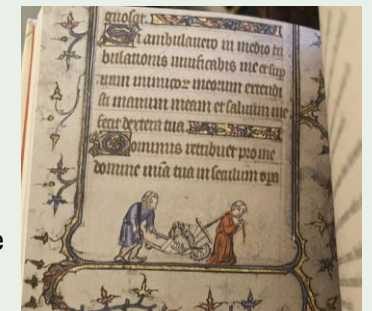 Si ambulauero in medio tri
bulationis uiuificabis me et sup
iram inimicoꝝ meorum extendi
sti manum tuam et saluum me
fecit dextera tua
Dominus retribuet pro me
domine mia tua in seculum opa
e